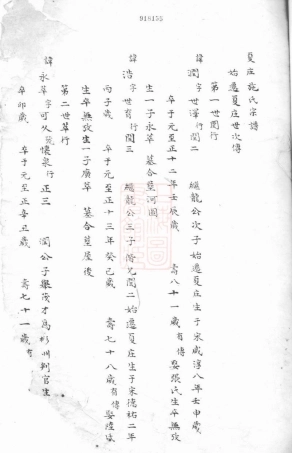 918155
夏庄施氏宗譜
始遷夏庄世次傳
第一世閏行
諱閏字世澤行閏二 繼龍公次子始遷夏庄生于宋咸淳八年壬申歲
卒于元至正十二年壬辰歲 壽八十一歲有傳娶張氏生卒無攷
生一子永萃 墓合葬河圖
諱浩字世育行閏三 繼龍公三子偕兄閏二始遷夏庄生于宋德祐二年
丙子歲 卒于元至正十三年癸巳歲 壽七十八歲有傳娶陸氏
生卒無攷生一子廣萃 墓合葬屋後
第二世萃行
諱永萃字可久號懷泉行正三 閏公子舉茂才爲州判官生
辛卯歲 卒于元至正辛丑歲 壽七十一歲有